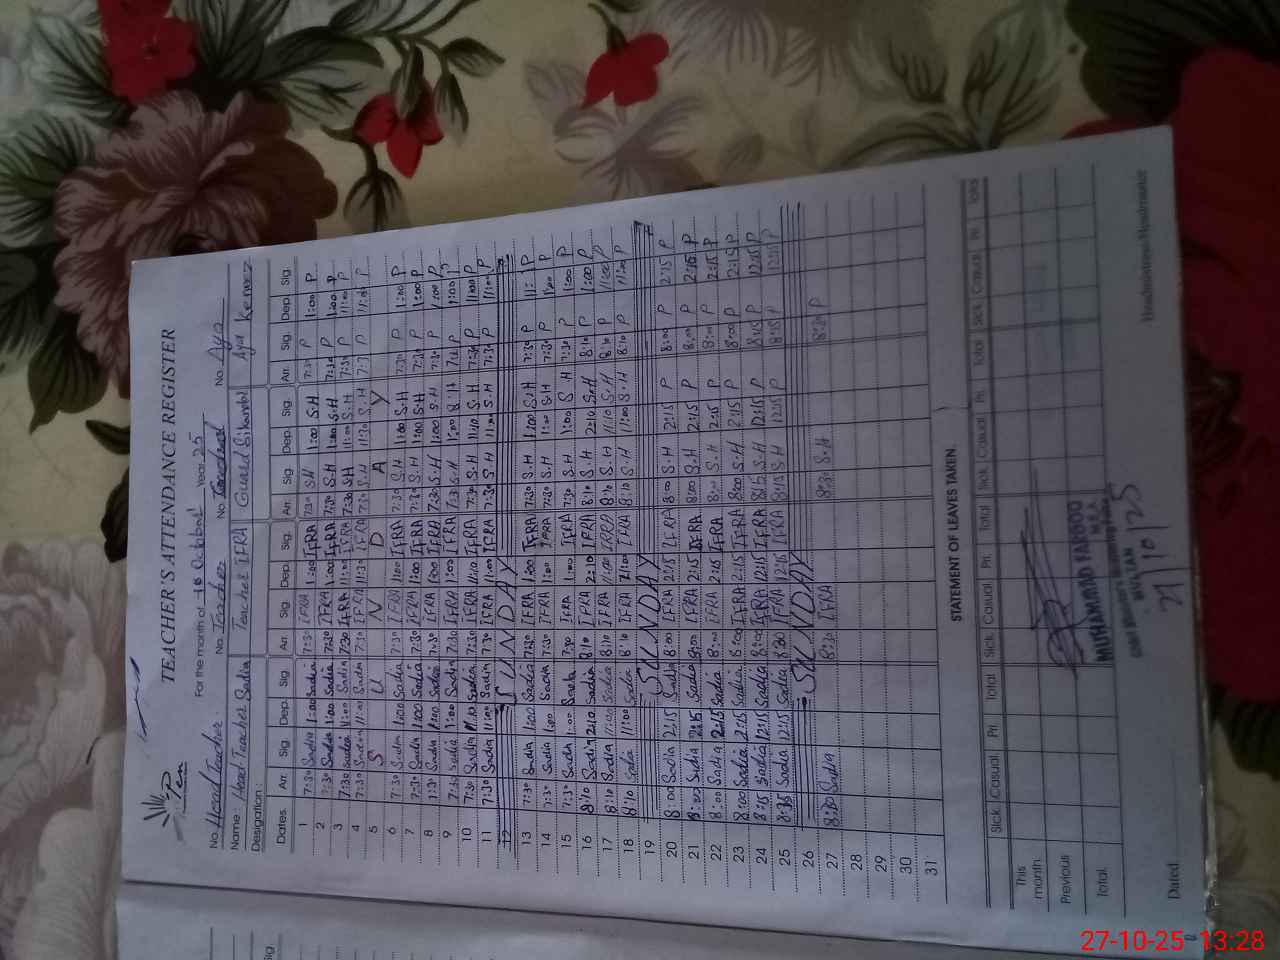 Pen
TEACHER'S ATTENDANCE REGISTER
For the month of October Year 25
No. Head Teacher. No. Teacher No. No. Aya
Name: Head Teacher Sadia Teacher IFRA Guard Aya
Desigation:
Dates Arr. Sig. Dep. Sig. Arr. Sig. Dep. Sig. Arr. Sig. Dep. Sig. Arr. Sig. Dep. Sig.
1 7:30 Sadia 1:00 Sadia 7:30 IFRA 1:00 IFRA 7:30 S.H 1:00 S.H 7:30 P 1:00 P
2 7:30 Sadia 1:00 Sadia 7:30 IFRA 1:00 IFRA 7:30 S.H 1:00 S.H 7:30 P 1:00 P
3 7:30 Sadia 11:00 Sadia 7:30 IFRA 11:00 IFRA 7:30 S.H 11:00 S.H 7:30 P 11:00 P
4 7:30 Sadia 11:00 Sadia 7:30 IFRA 11:30 IFRA 7:30 S.H 11:30 S.H P P
5 S U N D A Y
6 7:30 Sadia 1:00 Sadia 7:30 IFRA 1:00 IFRA 7:30 S.H 1:00 S.H 7:30 P 1:00 P
7 7:30 Sadia 1:00 Sadia 7:30 IFRA 1:00 IFRA 7:30 S.H 1:00 S.H 7:30 P 1:00 P
8 7:30 Sadia 1:00 Sadia 7:30 IFRA 1:00 IFRA 7:30 S.H 1:00 S.H 7:30 P 1:00 P
9 7:30 Sadia 1:00 Sadia 7:30 IFRA 1:00 IFRA 7:30 S.H 1:00 S.H P 1:00 P
10 7:30 Sadia 11:10 Sadia 7:30 IFRA 11:10 IFRA 7:30 S.H 11:10 S.H 7:30 P 11:00 P
11 7:30 Sadia 11:00 Sadia 7:30 IFRA 11:00 IFRA 7:30 S.H 11:00 S.H 7:30 P 11:00 P
12 SUNDAY
13 7:30 Sadia 1:00 Sadia 7:30 IFRA 1:00 IFRA 7:30 S.H 1:00 S.H 7:30 P P
14 7:30 Sadia 1:00 Sadia 7:30 IFRA 1:00 IFRA 7:30 S.H 1:00 S.H 7:30 P 1:00 P
15 7:30 Sadia 1:00 Sadia 7:30 IFRA 1:00 IFRA 7:30 S.H 1:00 S.H 7:30 P 1:00 P
16 8:10 Sadia 2:10 Sadia 8:10 IFRA 2:10 IFRA 8:10 S.H 2:10 S.H 8:10 P 1:00 P
17 8:10 Sadia 11:00 Sadia 8:10 IFRA 11:00 IFRA 8:10 S.H 11:10 S.H 8:10 P 11:00 P
18 8:10 Sadia 11:00 Sadia 8:10 IFRA IFRA 8:10 S.H 11:00 S.H 8:10 P 11:00 P
19 SUNDAY
20 8:00 Sadia 2:15 Sadia 8:00 IFRA 2:15 IFRA 8:00 S.H 2:15 P 8:00 P 2:15 P
21 8:00 Sadia 2:15 Sadia 8:00 IFRA 2:15 IFRA 8:00 S.H 2:15 P 8:00 P 2:15 P
22 8:00 Sadia 2:15 Sadia 8:00 IFRA 2:15 IFRA 8:00 S.H 2:15 P 8:00 P 2:15 P
23 8:00 Sadia 2:15 Sadia 8:00 IFRA 2:15 IFRA 8:00 S.H 2:15 P 8:00 P 2:15 P
24 8:15 Sadia 12:15 Sadia 8:00 IFRA 12:15 IFRA 8:15 S.H 12:15 P 8:15 P 12:15 P
25 Sadia 12:15 Sadia 8:30 IFRA 12:15 IFRA 8:15 S.H 12:15 P 8:15 P P
26 SUNDAY
27 8:30 Sadia 8:30 IFRA 8:30 S.H 8:30 P
28
29
30
31
STATEMENT OF LEAVES TAKEN
Sick Casual Pri Total Sick Casual Pri Total Sick Casual Pri Total Sick Casual Pri Total
This month
Previous
Total.
MUHAMMAD FAROOQ
MULTAN
27/10/25
Dated Headmistress/Headmaster
27-10-25 13:28